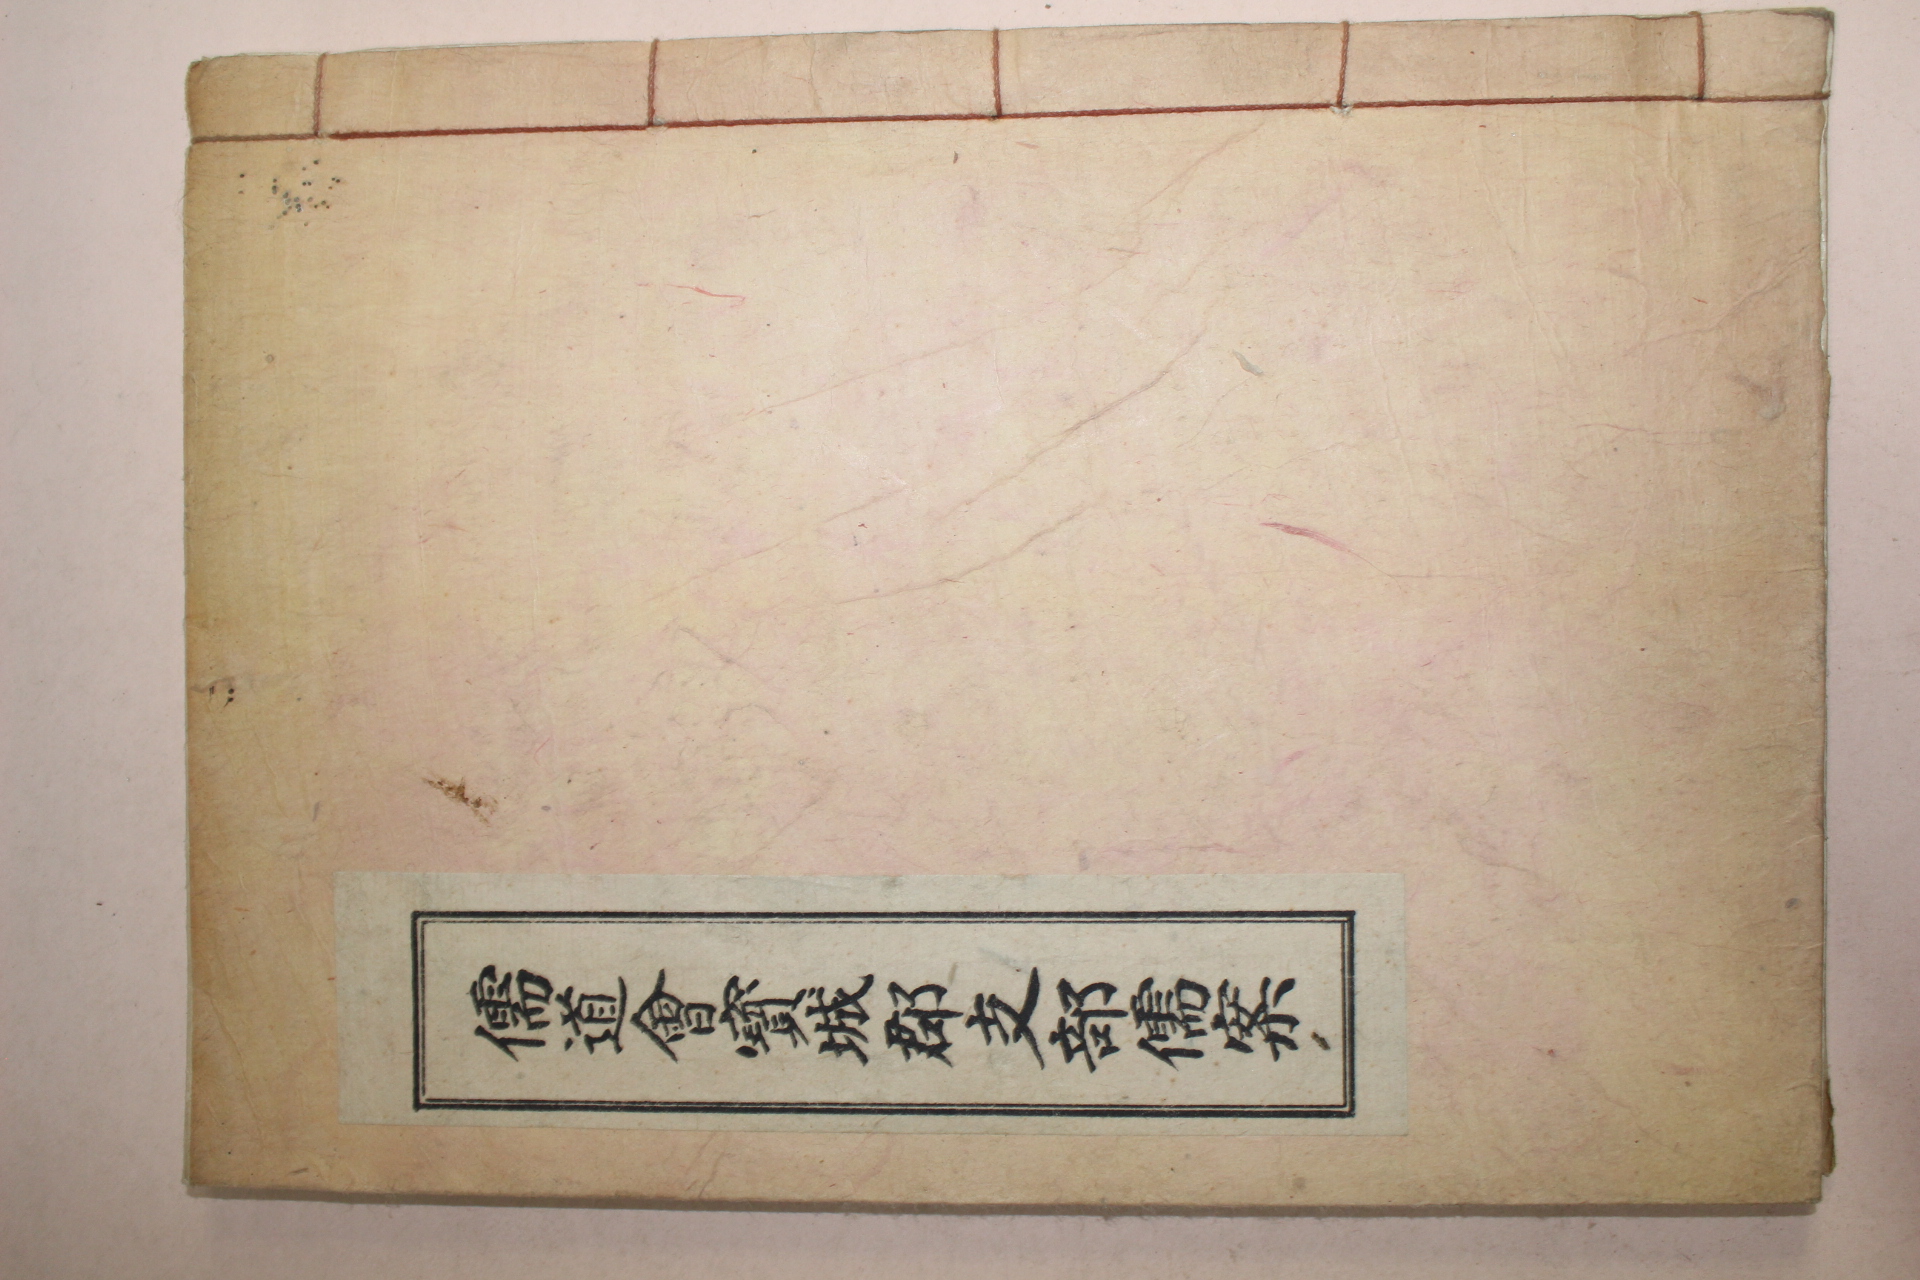 儒道會寶城郡支部儒案